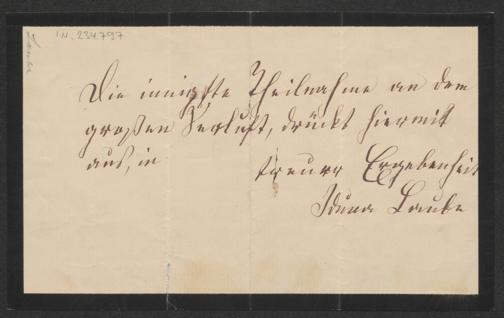 I.N. 234.797
Laube
Die innigste Theilnahme an dem
großen Verlust, drückt hiermit
aus, in
treuer Ergebenheit
Iduna Laube